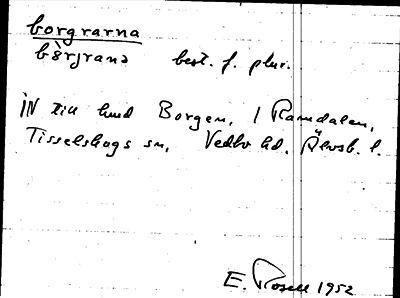 borgrarna
bȯ̀rjrana best. f. plur.
IN till hmd Borgen, / Ramdalen,
Tisselskogs sn, Vedbo hd. Älvsb. l.
E. Rosell 1952